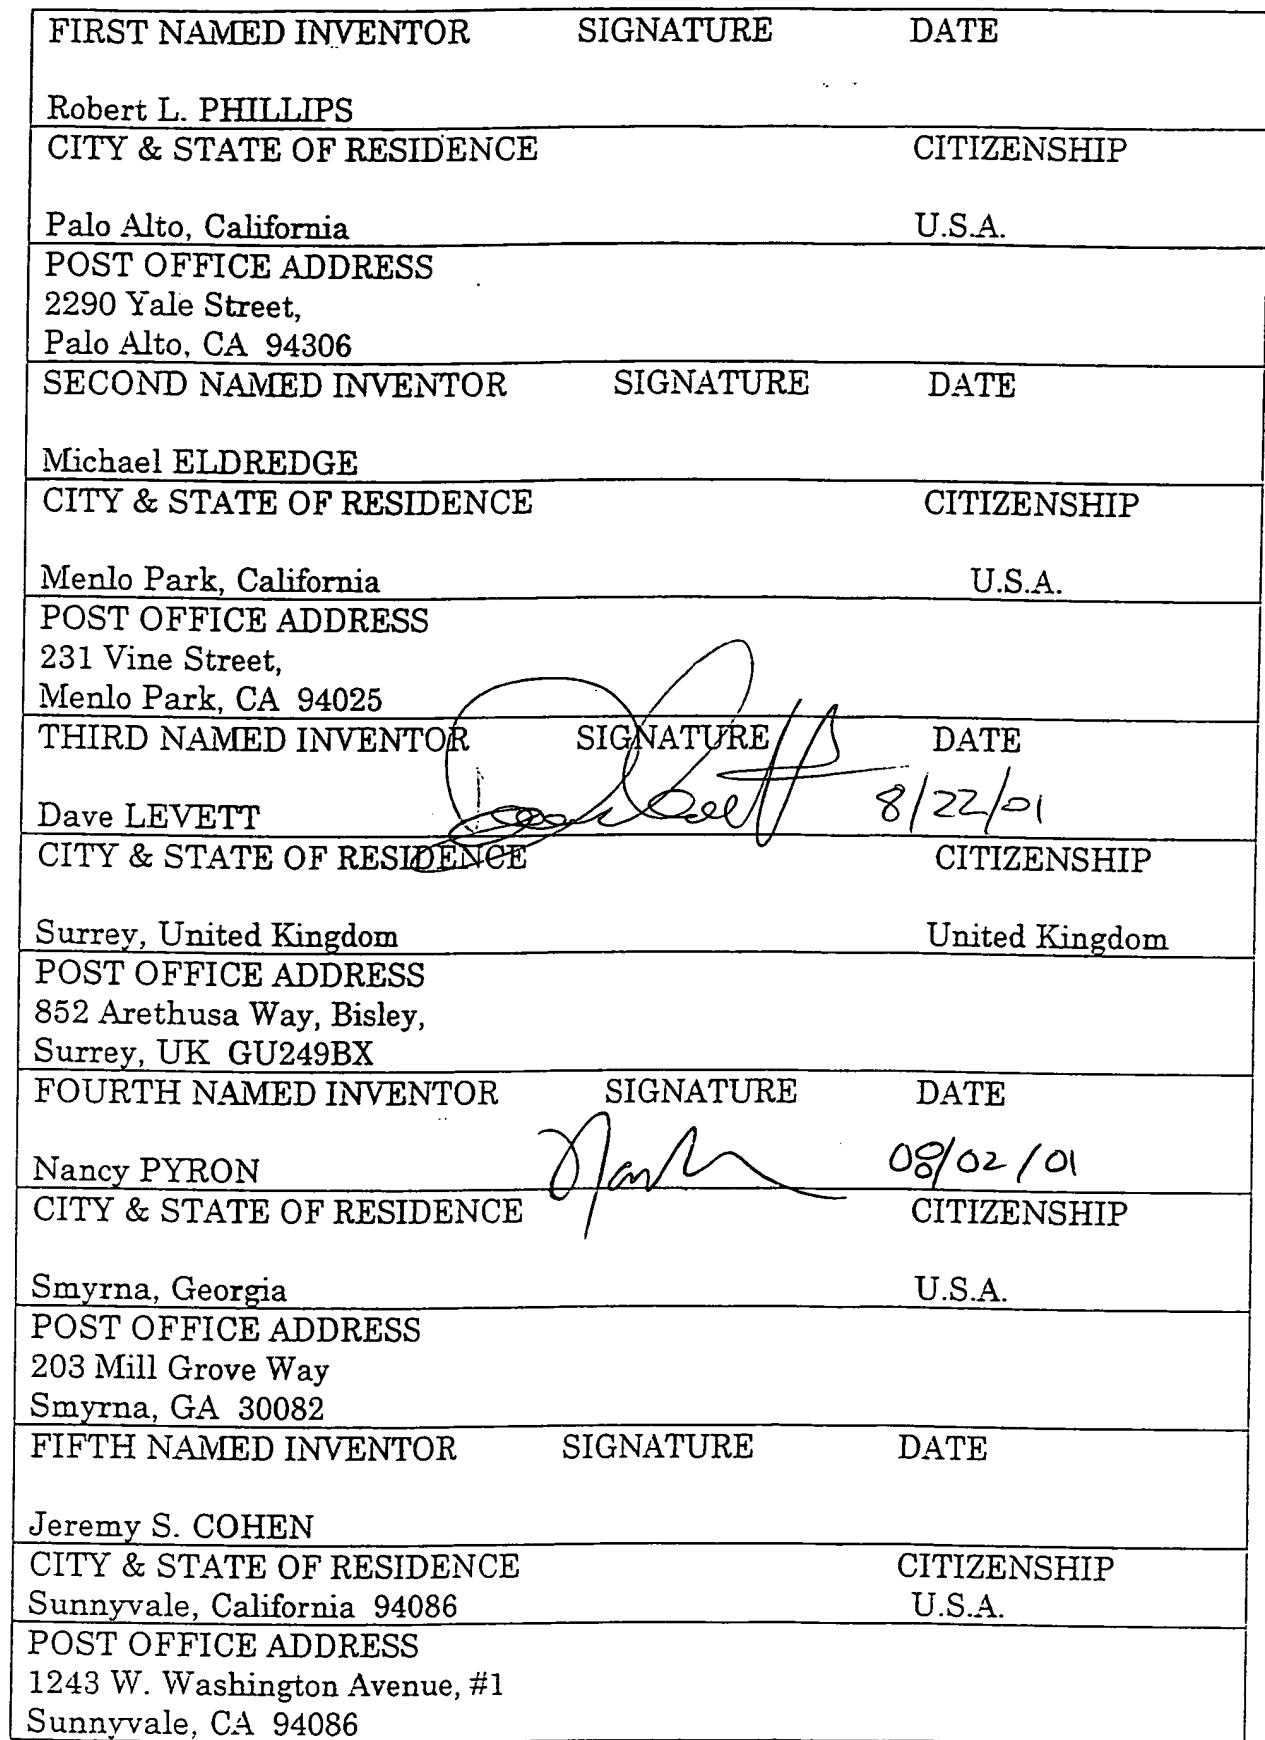 FIRST NAMED INVENTOR SIGNATURE DATE
Robert L. PHILLIPS
CITY & STATE OF RESIDENCE CITIZENSHIP
Palo Alto, California U.S.A.
POST OFFICE ADDRESS
2290 Yale Street,
Palo Alto, CA 94306
SECOND NAMED INVENTOR SIGNATURE DATE
Michael ELDREDGE
CITY & STATE OF RESIDENCE CITIZENSHIP
Menlo Park, California U.S.A.
POST OFFICE ADDRESS
231 Vine Street,
Menlo Park, CA 94025
THIRD NAMED INVENTOR SIGNATURE DATE
Dave LEVETT 8/22/01
CITY & STATE OF RESIDENCE CITIZENSHIP
Surrey, United Kingdom United Kingdom
POST OFFICE ADDRESS
852 Arethusa Way, Bisley,
Surrey, UK GU249BX
FOURTH NAMED INVENTOR SIGNATURE DATE
Nancy PYRON 08/02/01
CITY & STATE OF RESIDENCE CITIZENSHIP
Smyrna, Georgia U.S.A.
POST OFFICE ADDRESS
203 Mill Grove Way
Smyrna, GA 30082
FIFTH NAMED INVENTOR SIGNATURE DATE
Jeremy S. COHEN
CITY & STATE OF RESIDENCE CITIZENSHIP
Sunnyvale, California 94086 U.S.A.
POST OFFICE ADDRESS
1243 W. Washington Avenue, #1
Sunnyvale, CA 94086